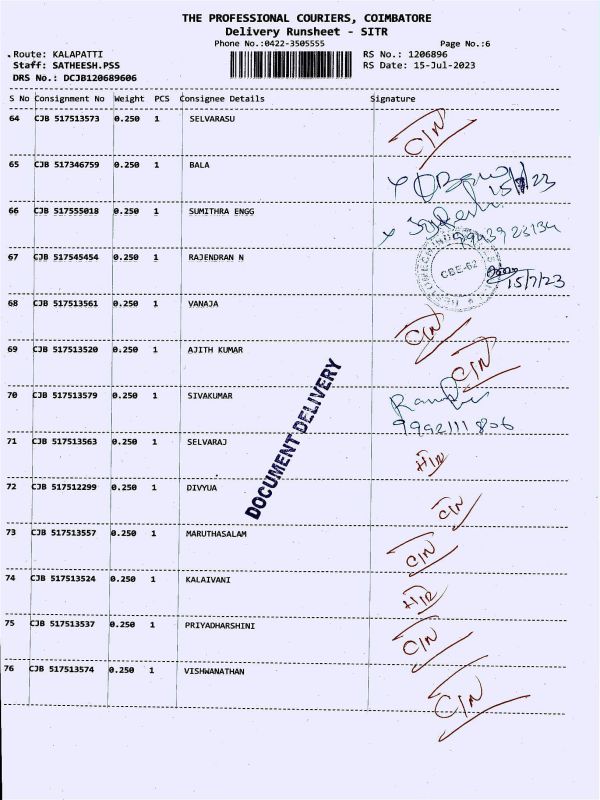 THE PROFESSIONAL COURIERS, COIMBATORE
Delivery Runsheet - SITR
Phone No.:0422-3505555 Page No.:6
Route: KALAPATTI RS No.: 1206896
Staff: SATHEESH.PSS RS Date: 15-Jul-2023
DRS No.: DCJB120689606
S No Consignment No Weight PCS Consignee Details Signature
64 CJB 517513573 0.250 1 SELVARASU C/N
65 CJB 517346759 0.250 1 BALA 15/7/23
66 CJB 517555018 0.250 1 SUMITHRA ENGG
67 CJB 517545454 0.250 1 RAJENDRAN N CBE-62 15/7/23
68 CJB 517513561 0.250 1 VANAJA C/N
69 CJB 517513520 0.250 1 AJITH KUMAR C/N
70 CJB 517513579 0.250 1 SIVAKUMAR
71 CJB 517513563 0.250 1 SELVARAJ
72 CJB 517512299 0.250 1 DIVYUA C/N
73 CJB 517513557 0.250 1 MARUTHASALAM C/N
74 CJB 517513524 0.250 1 KALAIVANI
75 CJB 517513537 0.250 1 PRIYADHARSHINI C/N
76 CJB 517513574 0.250 1 VISHWANATHAN C/N
DOCUMENT DELIVERY